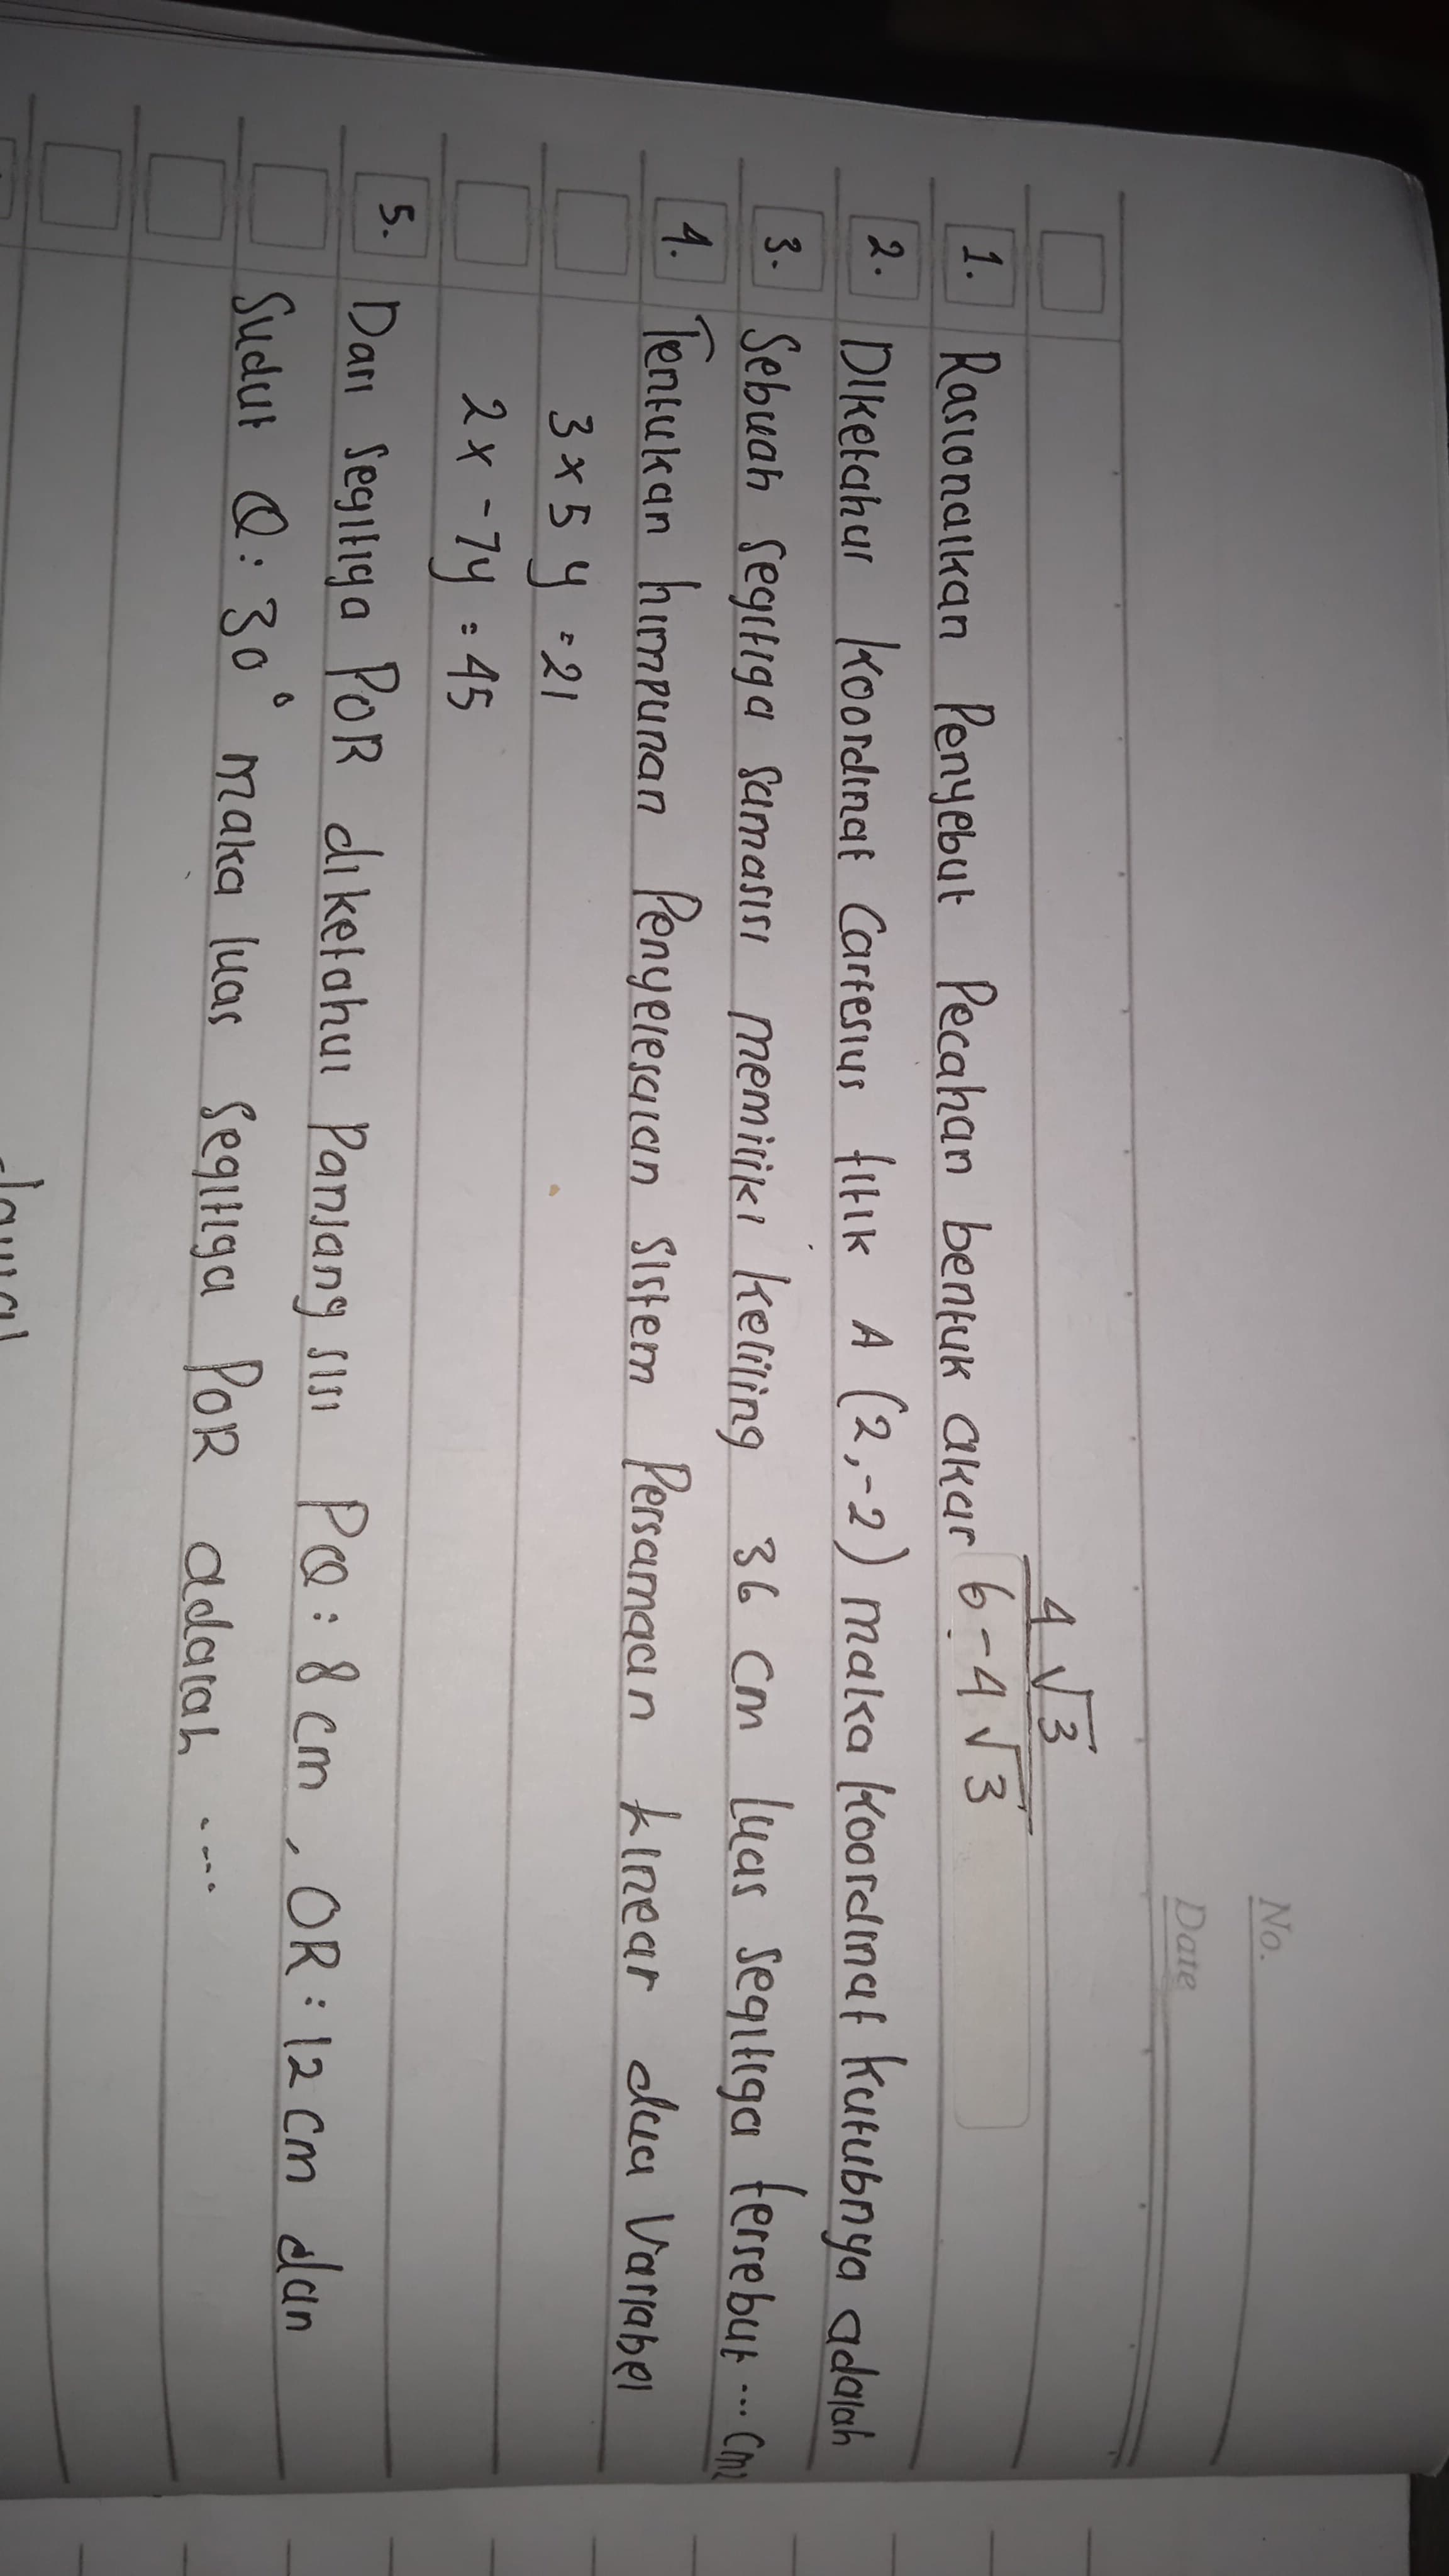 No.
Date
4√3
1. Rasionalkan Penyebut Pecahan bentuk akar 6-4√3
2. Diketahui koordinat Cartesius titik A (2,-2) maka koordinat kutubnya adalah
3. Sebuah segitiga samasisi memiliki keliling 36 cm luas segitiga tersebut ... cm²
4. Tentukan himpunan Penyelesaian sistem Persamaan linear dua Variabel
3x5y = 21
2x-7y = 45
5. Dari segitiga PQR diketahui Panjang sisi PQ : 8 cm , QR : 12 cm dan
Sudut Q : 30° maka luas segitiga PQR adalah ....